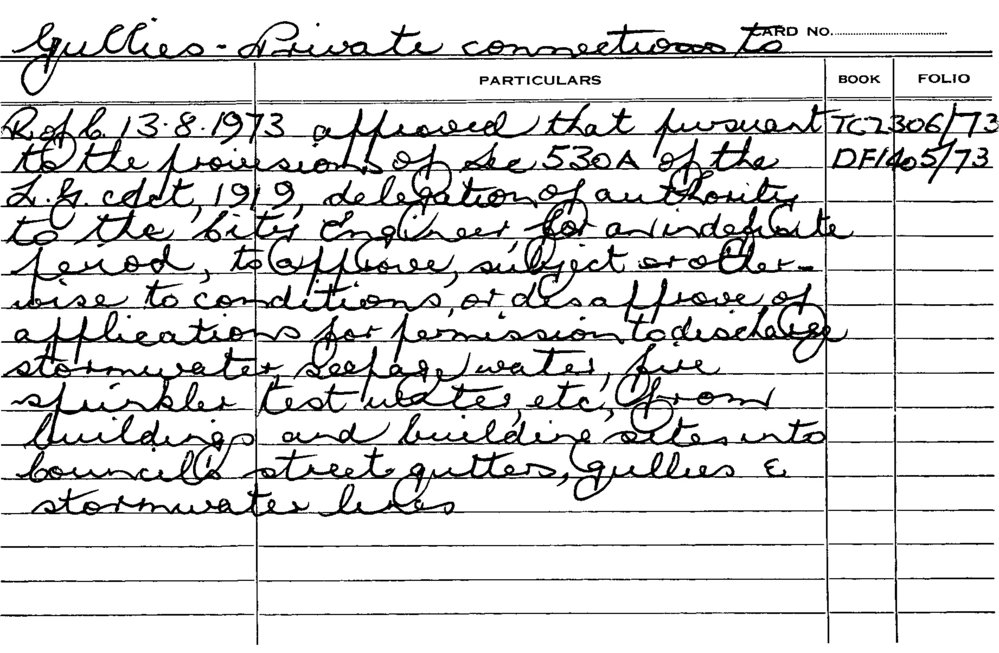 Gullies - Private connections to
CARD NO.
PARTICULARS BOOK FOLIO
R of C. 13.8.1973 approved that pursuant TC2306/73
to the provisions of Sec 530A of the DF1405/73
L.G. Act, 1919, delegation of authority
to the City Engineer, for an indefinite
period, to approve, subject or other-
wise to conditions, or disapprove of
applications for permission to discharge
stormwater, seepage water, fire
sprinkler test water, etc, from
buildings and building sites into
Council's street gutters, gullies &
stormwater lines